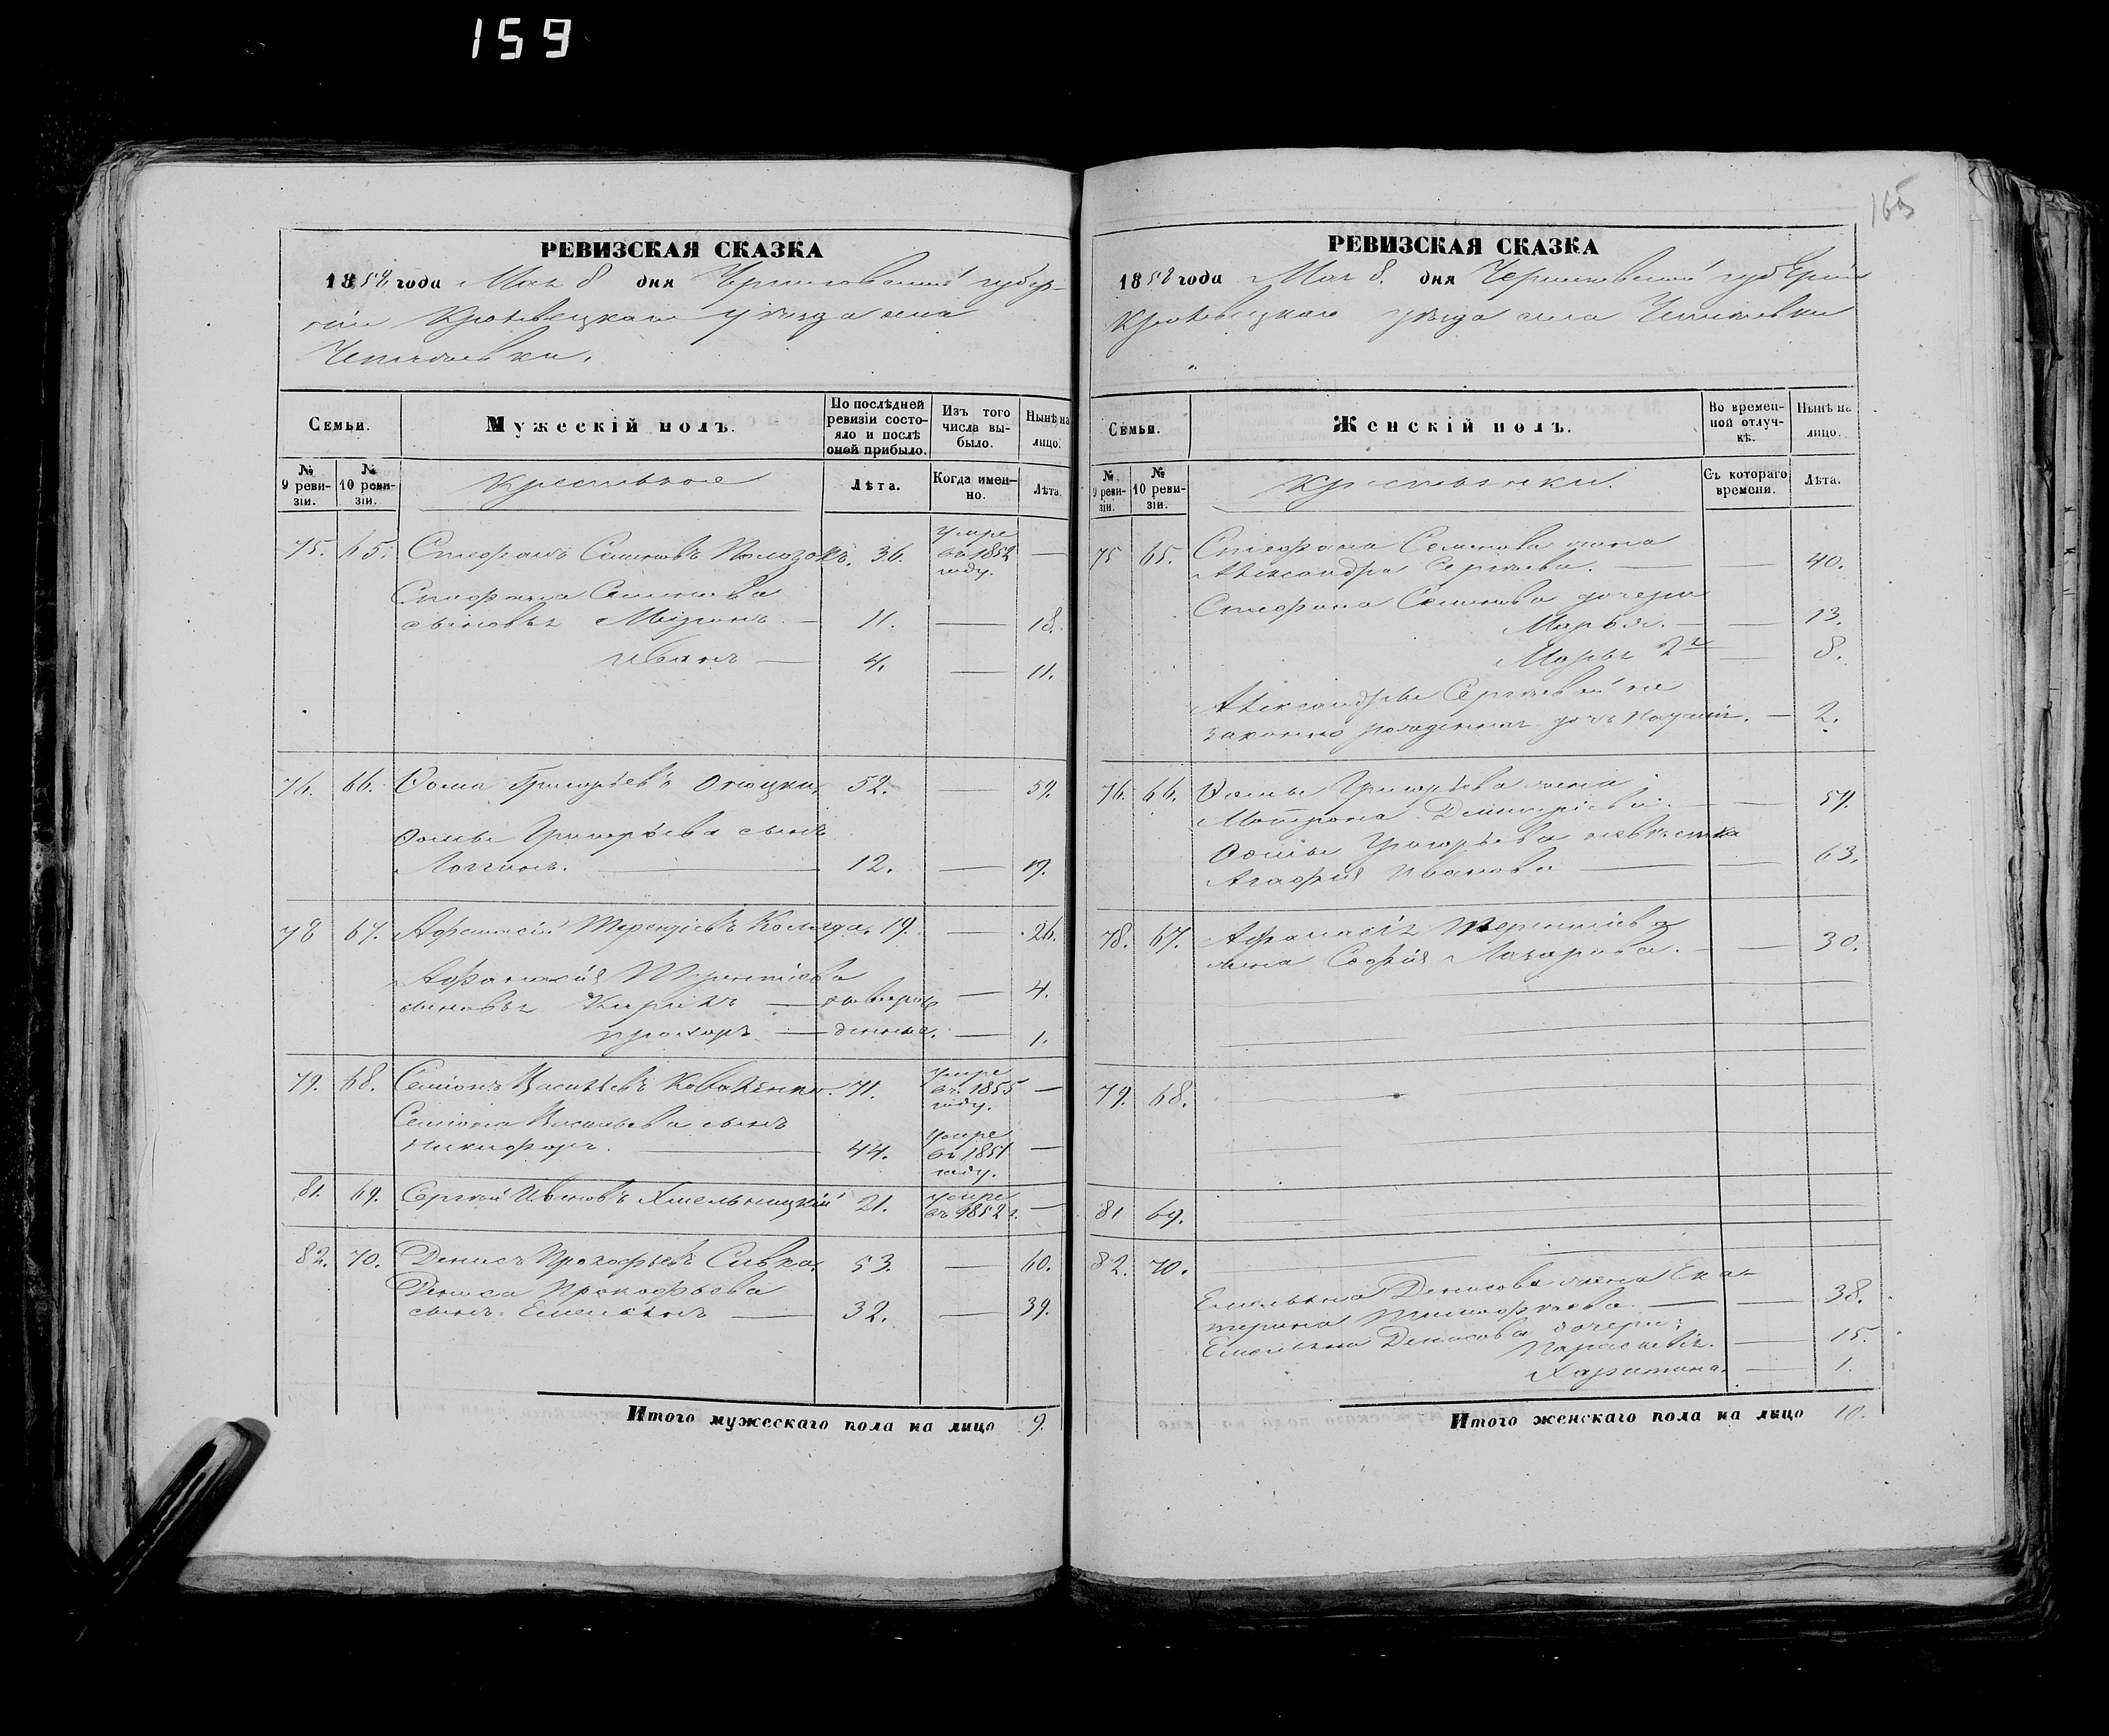 159
165
РЕВИЗСКАЯ СКАЗКА
1858 года Мая 8 дня Черниговской губер-
ніи Кролевецкаго уѣзда села
Чепліевки.
Семьи.
Мужескій полъ.
По послѣдней ревизіи состо-
яло и послѣ оной прибыло.
Изъ того числа вы-
было.
Нынѣ на лицо.
№ 9 реви-
зіи.
№ 10 реви-
зіи.
Крестьяне
Лѣта.
Когда имен-
но.
Лѣта.
75. 65. Стефанъ Семеновъ 36. умре
въ 1852
году. —
Стефана Семенова
сыновья Миронъ — 11. — 18.
Иванъ — 4. — 11.
76. 66. Фома Григорьевъ 52. — 59.
Фомы Григорьева сынъ
Логгинъ. — 12. — 19.
78 67. Афанасій Терентіевъ Коляда. 19. — 26.
Афанасія Терентіева
сыновья Кирилъ — новорож — 4.
Прохоръ — денные. — 1.
79. 68. Семіонъ Васильевъ Коваленко. 71. умре
въ 1855
году. —
Семіона Васильева сынъ
Никифоръ. — 44. умре
въ 1851
году. —
81. 69. Сергей Ивановъ Хмельницкій 21. умре
въ 1852 г. —
82. 70. Денисъ Прокофьевъ Сивка. 53. — 60.
Дениса Прокофьева
сынъ Емельянъ — 32. — 39.
Итого мужескаго пола на лицо 9.
РЕВИЗСКАЯ СКАЗКА
1858 года Мая 8. дня Черниговской губерніи
Кролевецкаго уѣзда села Чепліевки
Семьи.
Женскій полъ.
Во времен-
ной отлуч-
кѣ.
Нынѣ на лицо.
№ 9 реви-
зіи.
№ 10 реви-
зіи.
Крестьянки.
Съ котораго времени.
Лѣта.
75 65. Стефана Семенова жена
Александра Сергѣева. — — 40.
Стефана Семенова дочери
Марья. — — 13.
Марья 2я — 8.
Александры Сергѣевой не
законно рожденная дочь — 2.
76. 66. Фомы Григорьева жена
Матрона Димитріева. — 59.
Фомы Григорьева невѣстка
Агафія Иванова — — 63.
78. 67. Афанасія Терентіева
жена Софія Лазарева. — — 30.
79. 68.
81 69.
82. 70.
Емельяна Денисова жена Ека-
терина Тимофѣева — — 38.
Емельяна Денисова дочери:
Параскевія. — 15.
Харитина. — 1.
Итого женскаго пола на лицо 10.